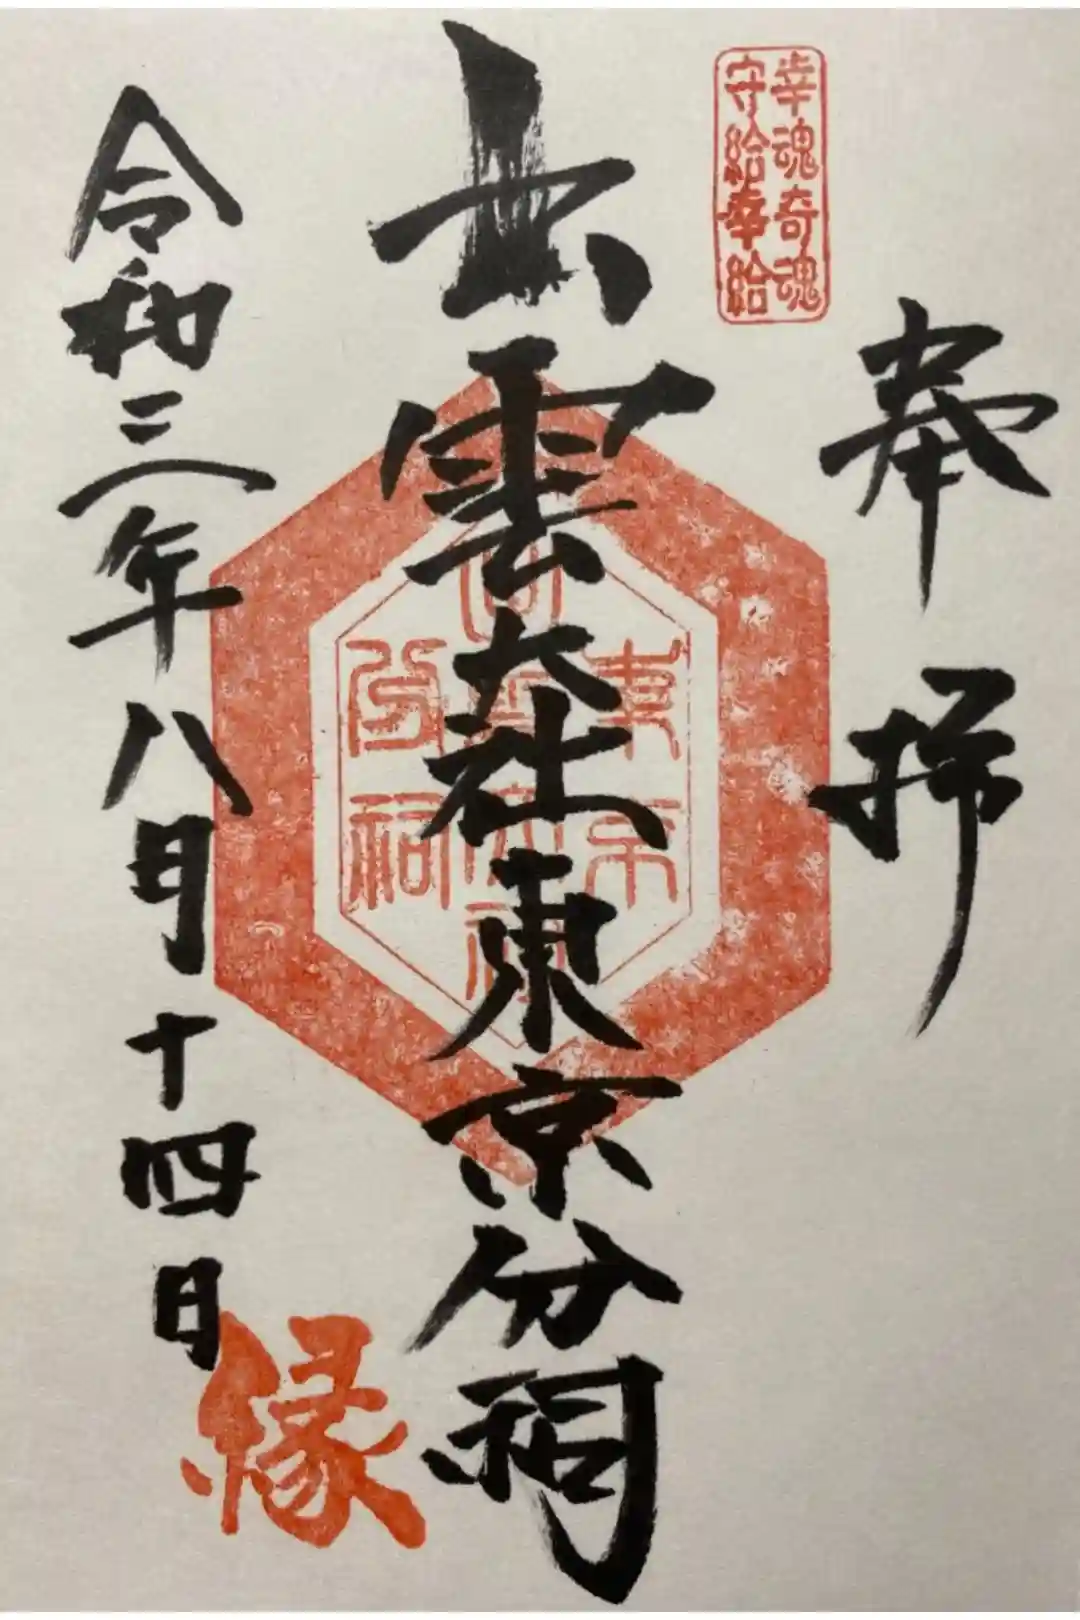 幸魂奇魂
守給幸給
奉拝
出雲大社東京分祠
東京
分祠
令和三年八月十四日
縁